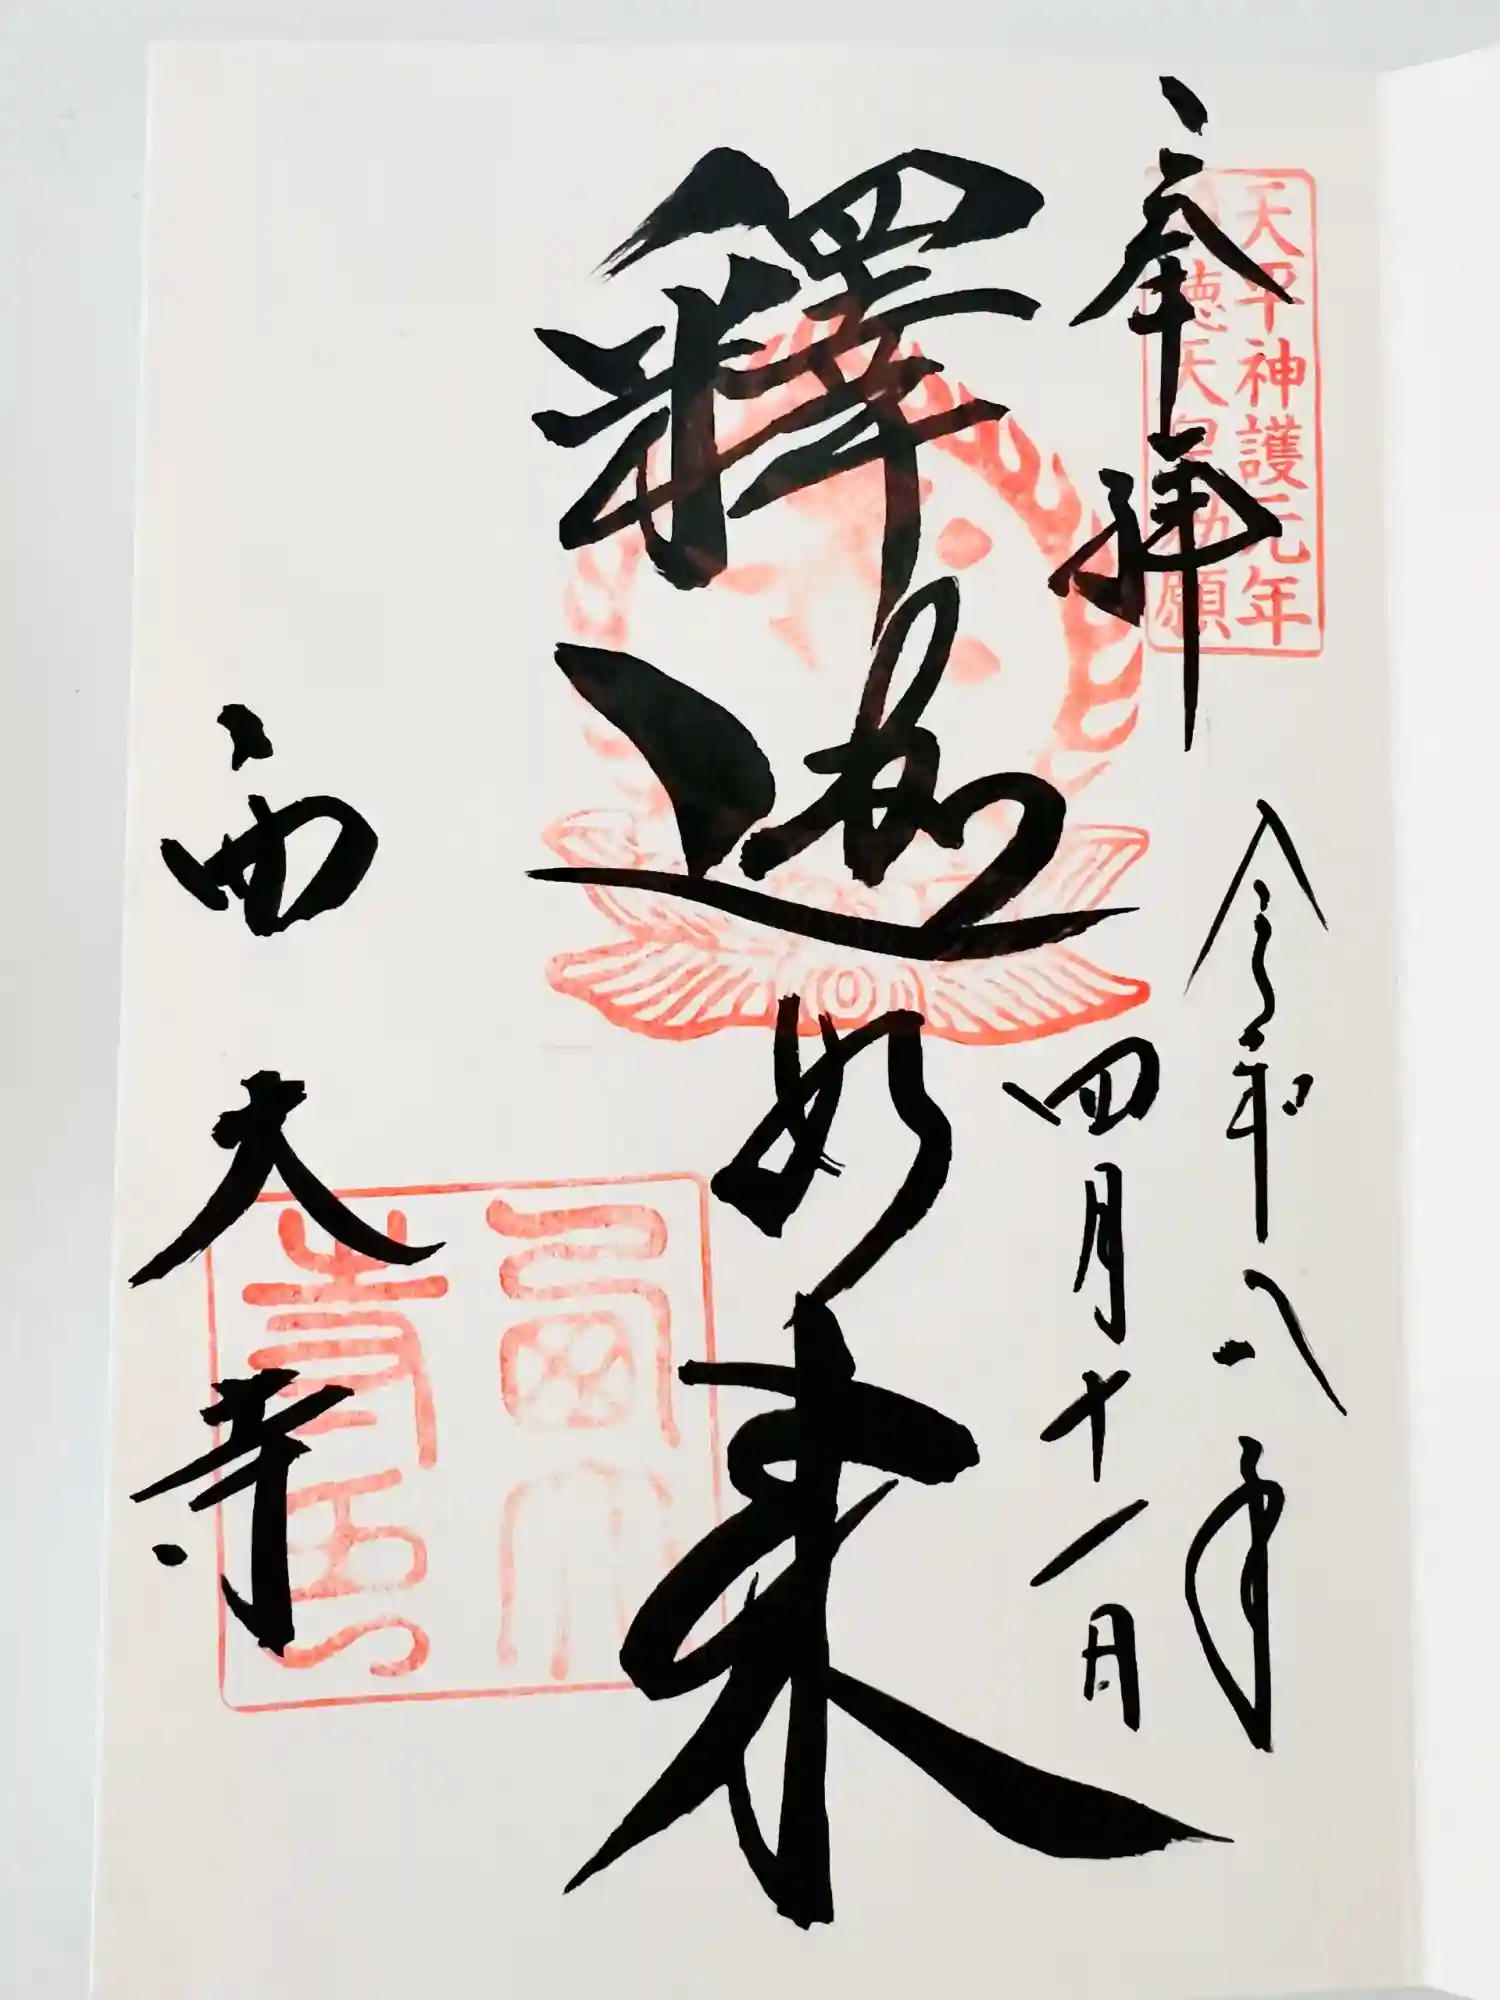 天平神護元年
徳天皇勅願
奉拝
令和八年
四月十一日
釋迦如来
西大寺